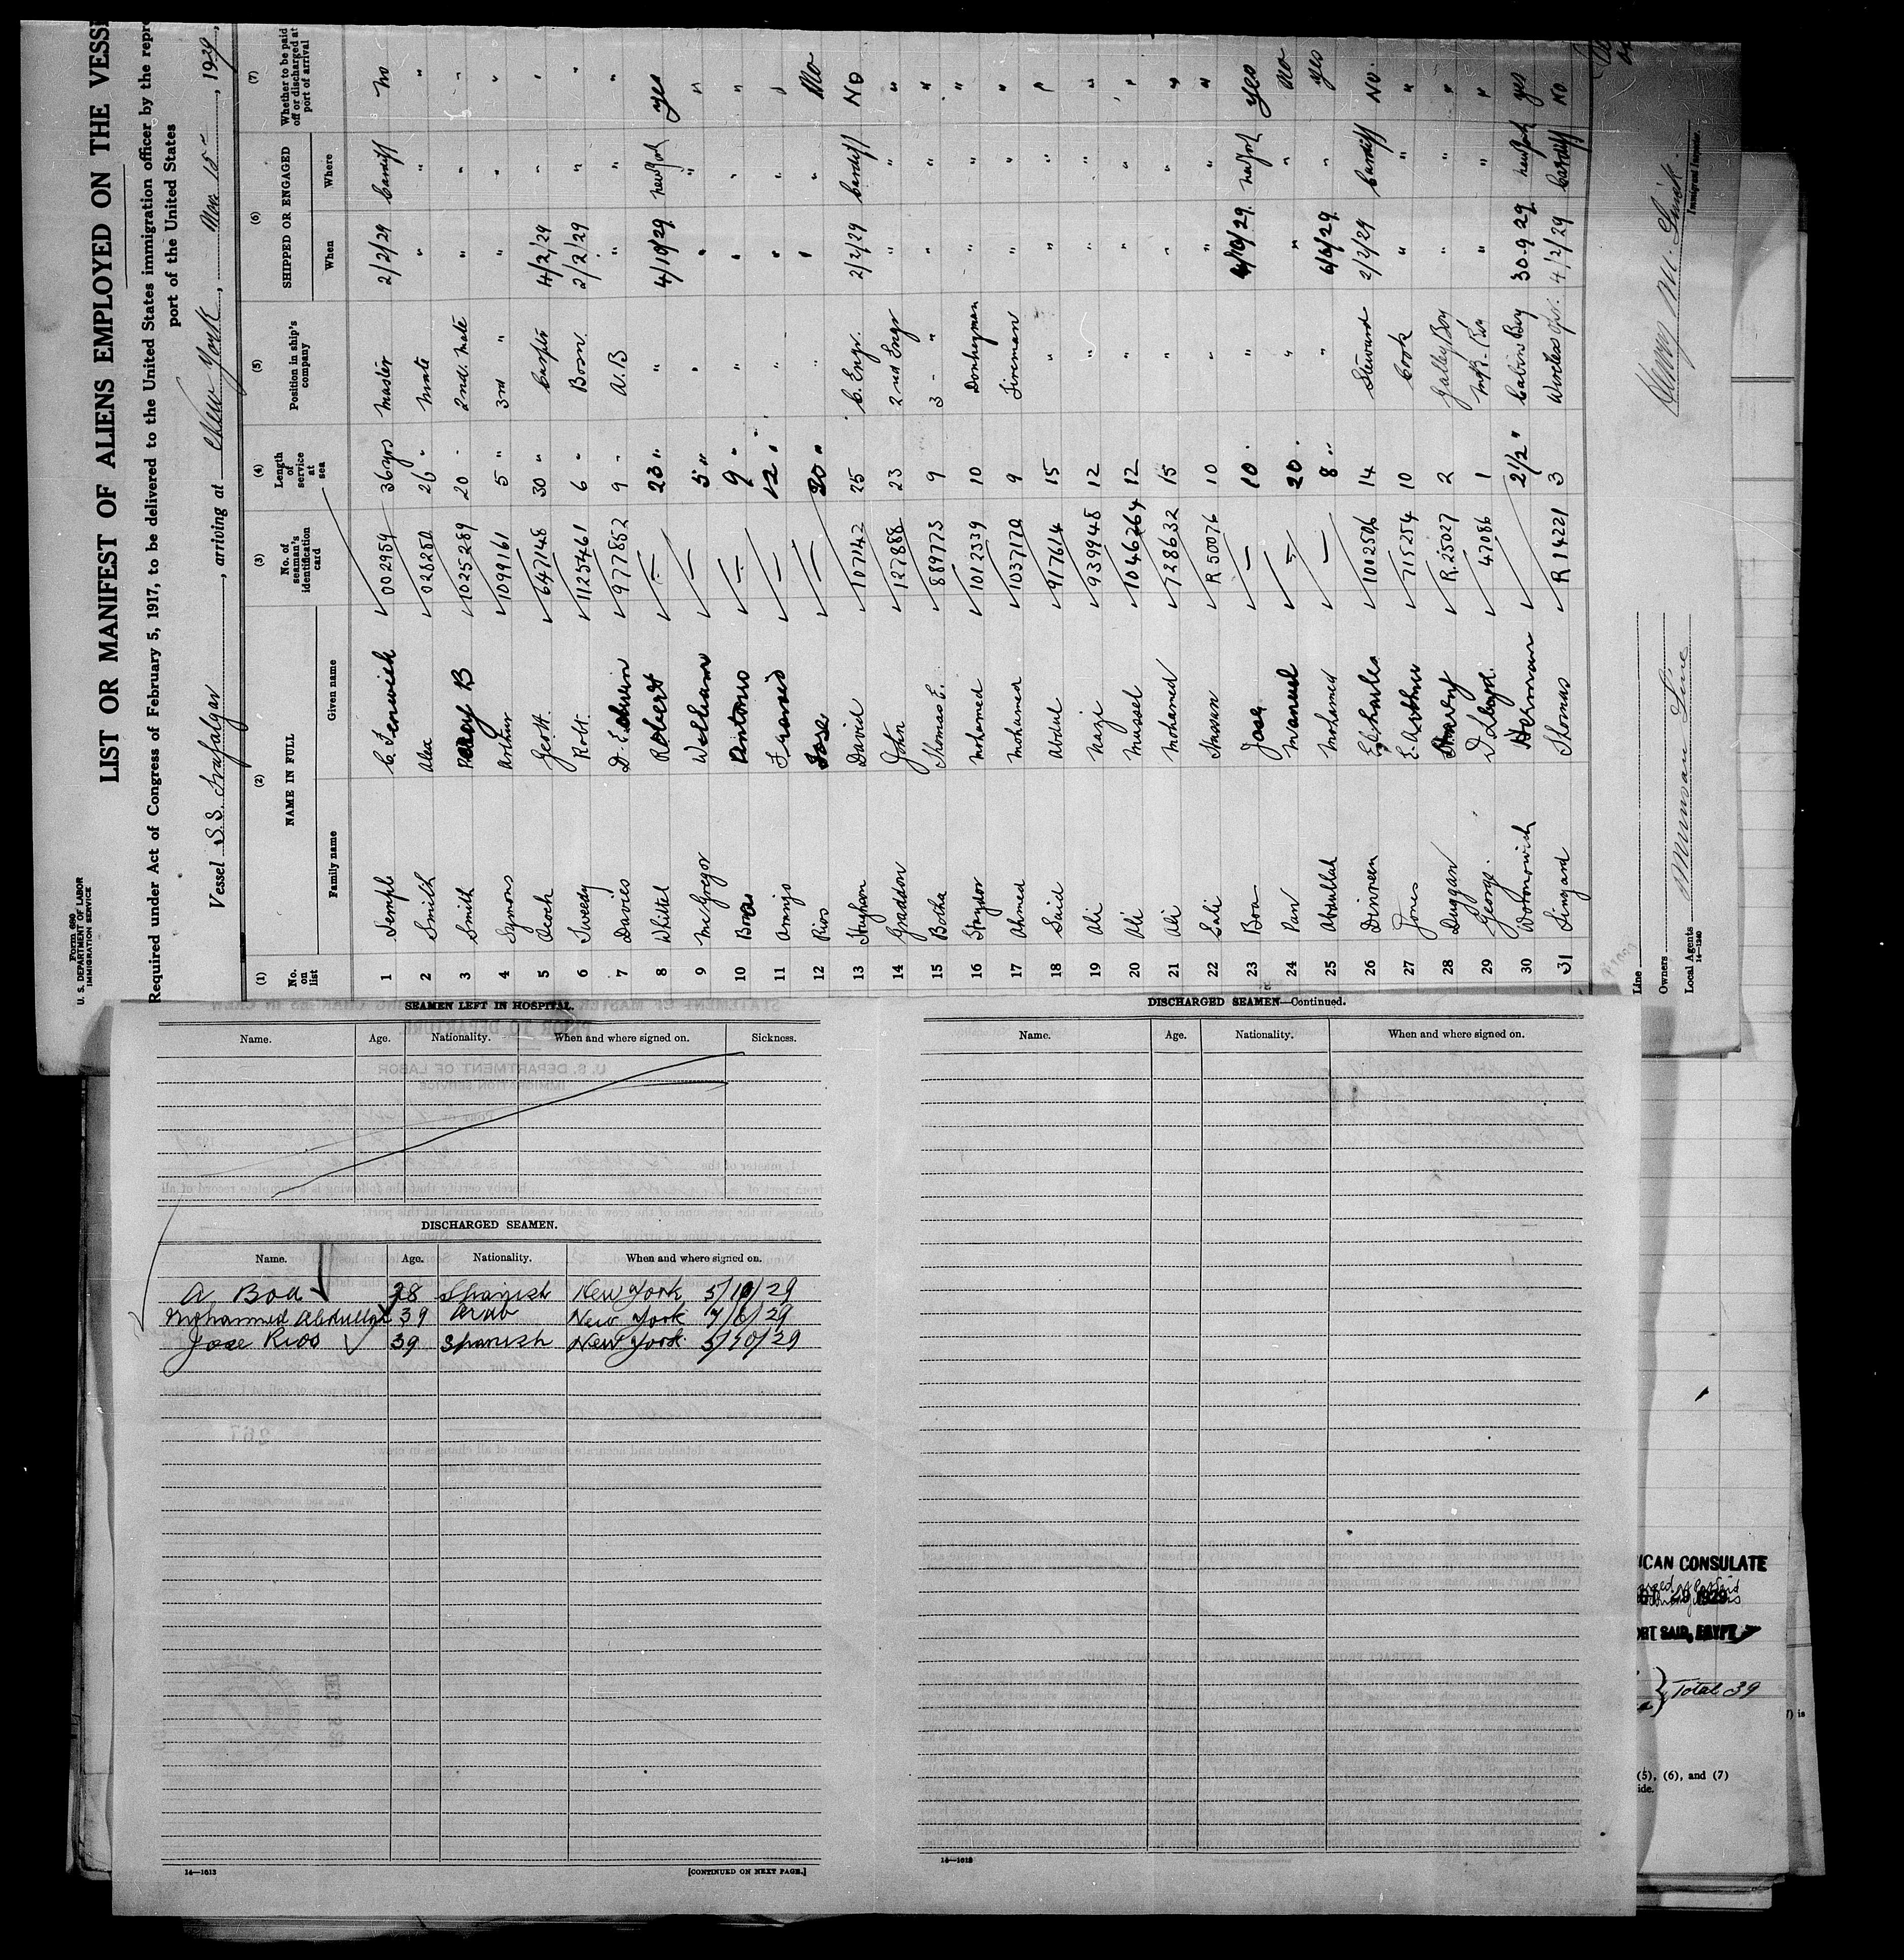 Form 680
U. S. DEPARTMENT OF LABOR
IMMIGRATION SERVICE
LIST OR MANIFEST OF ALIENS EMPLOYED ON THE VESSE
Required under Act of Congress of February 5, 1917, to be delivered to the United States immigration officer by the repr
port of the United States
Vessel S.S. Trafalgar, arriving at New York, Nov 15, 1929,
(1) (2) (3) (4) (5) (6) (7)
No. on list NAME IN FULL No. of seaman's identification card Length of service at sea Position in ship's company SHIPPED OR ENGAGED Whether to be paid off or discharged at port of arrival
Family name Given name When Where
1 Temple C. Fenwick 002959 36 yrs Master 2/2/29 Cardiff No
2 Smith Alex 028250 26 " Mate " " "
3 Smith Percy B 1025289 20 " 2nd. Mate " " "
4 Symons Arthur 1099161 5 " 3rd " " " "
5 Geo H. 647148 30 " 4/2/29 " "
6 Tweedy Robt. 1125461 6 " Bosn. 2/2/29 " "
7 Davies D. Edwin 977852 9 " A.B " " "
8 Whittel Robert — 23 " " 4/10/29 New York yes
9 McGregor William — 5 " " " " "
10 Antonio — 9 " " " " "
11 — 12 " " " " "
12 Rios Jose — 20 " " " " No
13 David 107142 25 C. Engr. 2/2/29 Cardiff No
14 Graddon John 127888 23 2nd Engr " " "
15 Botha Thomas E. 889773 9 3 - " " " "
16 Mohamed 1012339 10 Donkeyman " " "
17 Ahmed Mohamed 1037170 9 Fireman " " "
18 Said Abdul 917614 15 " " " "
19 Ali Nagi 939948 12 " " " "
20 Ali Mussel 1046264 12 " " " "
21 Ali Mohamed 728632 15 " " " "
22 Sali Hassan R 50076 10 " " " "
23 Boa Jose — 10 " 4/10/29 New York yes
24 Pan Manuel — 20 " " " No
25 Abdullah Mohamed — 8 " " 6/6/29 " yes
26 Dinneen Charles 1002506 14 Steward 2/2/29 Cardiff No.
27 Jones E. Arthur 715254 10 Cook " " "
28 Duggan R.25027 2 Galley Boy " " "
29 George. D. Lloyd. 47086 1 " " "
30 Herman 2½ " Cabin Boy 30.9.29 New York yes
31 Lingard Thomas R 14221 3 Wireless Opr. 4/2/29 Cardiff No
Line
Owners
Local Agents Munson Line
14—1240
Immigrant Inspector.
SEAMEN LEFT IN HOSPITAL.
Name. Age. Nationality. When and where signed on. Sickness.
DISCHARGED SEAMEN.
Name. Age. Nationality. When and where signed on.
A Boa 38 Spanish New York 5/10/29
Mohammed Abdullah 39 Arab New York 7/6/29
Jose Rios 39 Spanish New York 5/10/29
14—1613
[CONTINUED ON NEXT PAGE.]
DISCHARGED SEAMEN—Continued.
Name. Age. Nationality. When and where signed on.
14—1613
ICAN CONSULATE
29 1929
ORT SAID, EGYPT
Total 39
7) is
(5), (6), and (7)
ide.